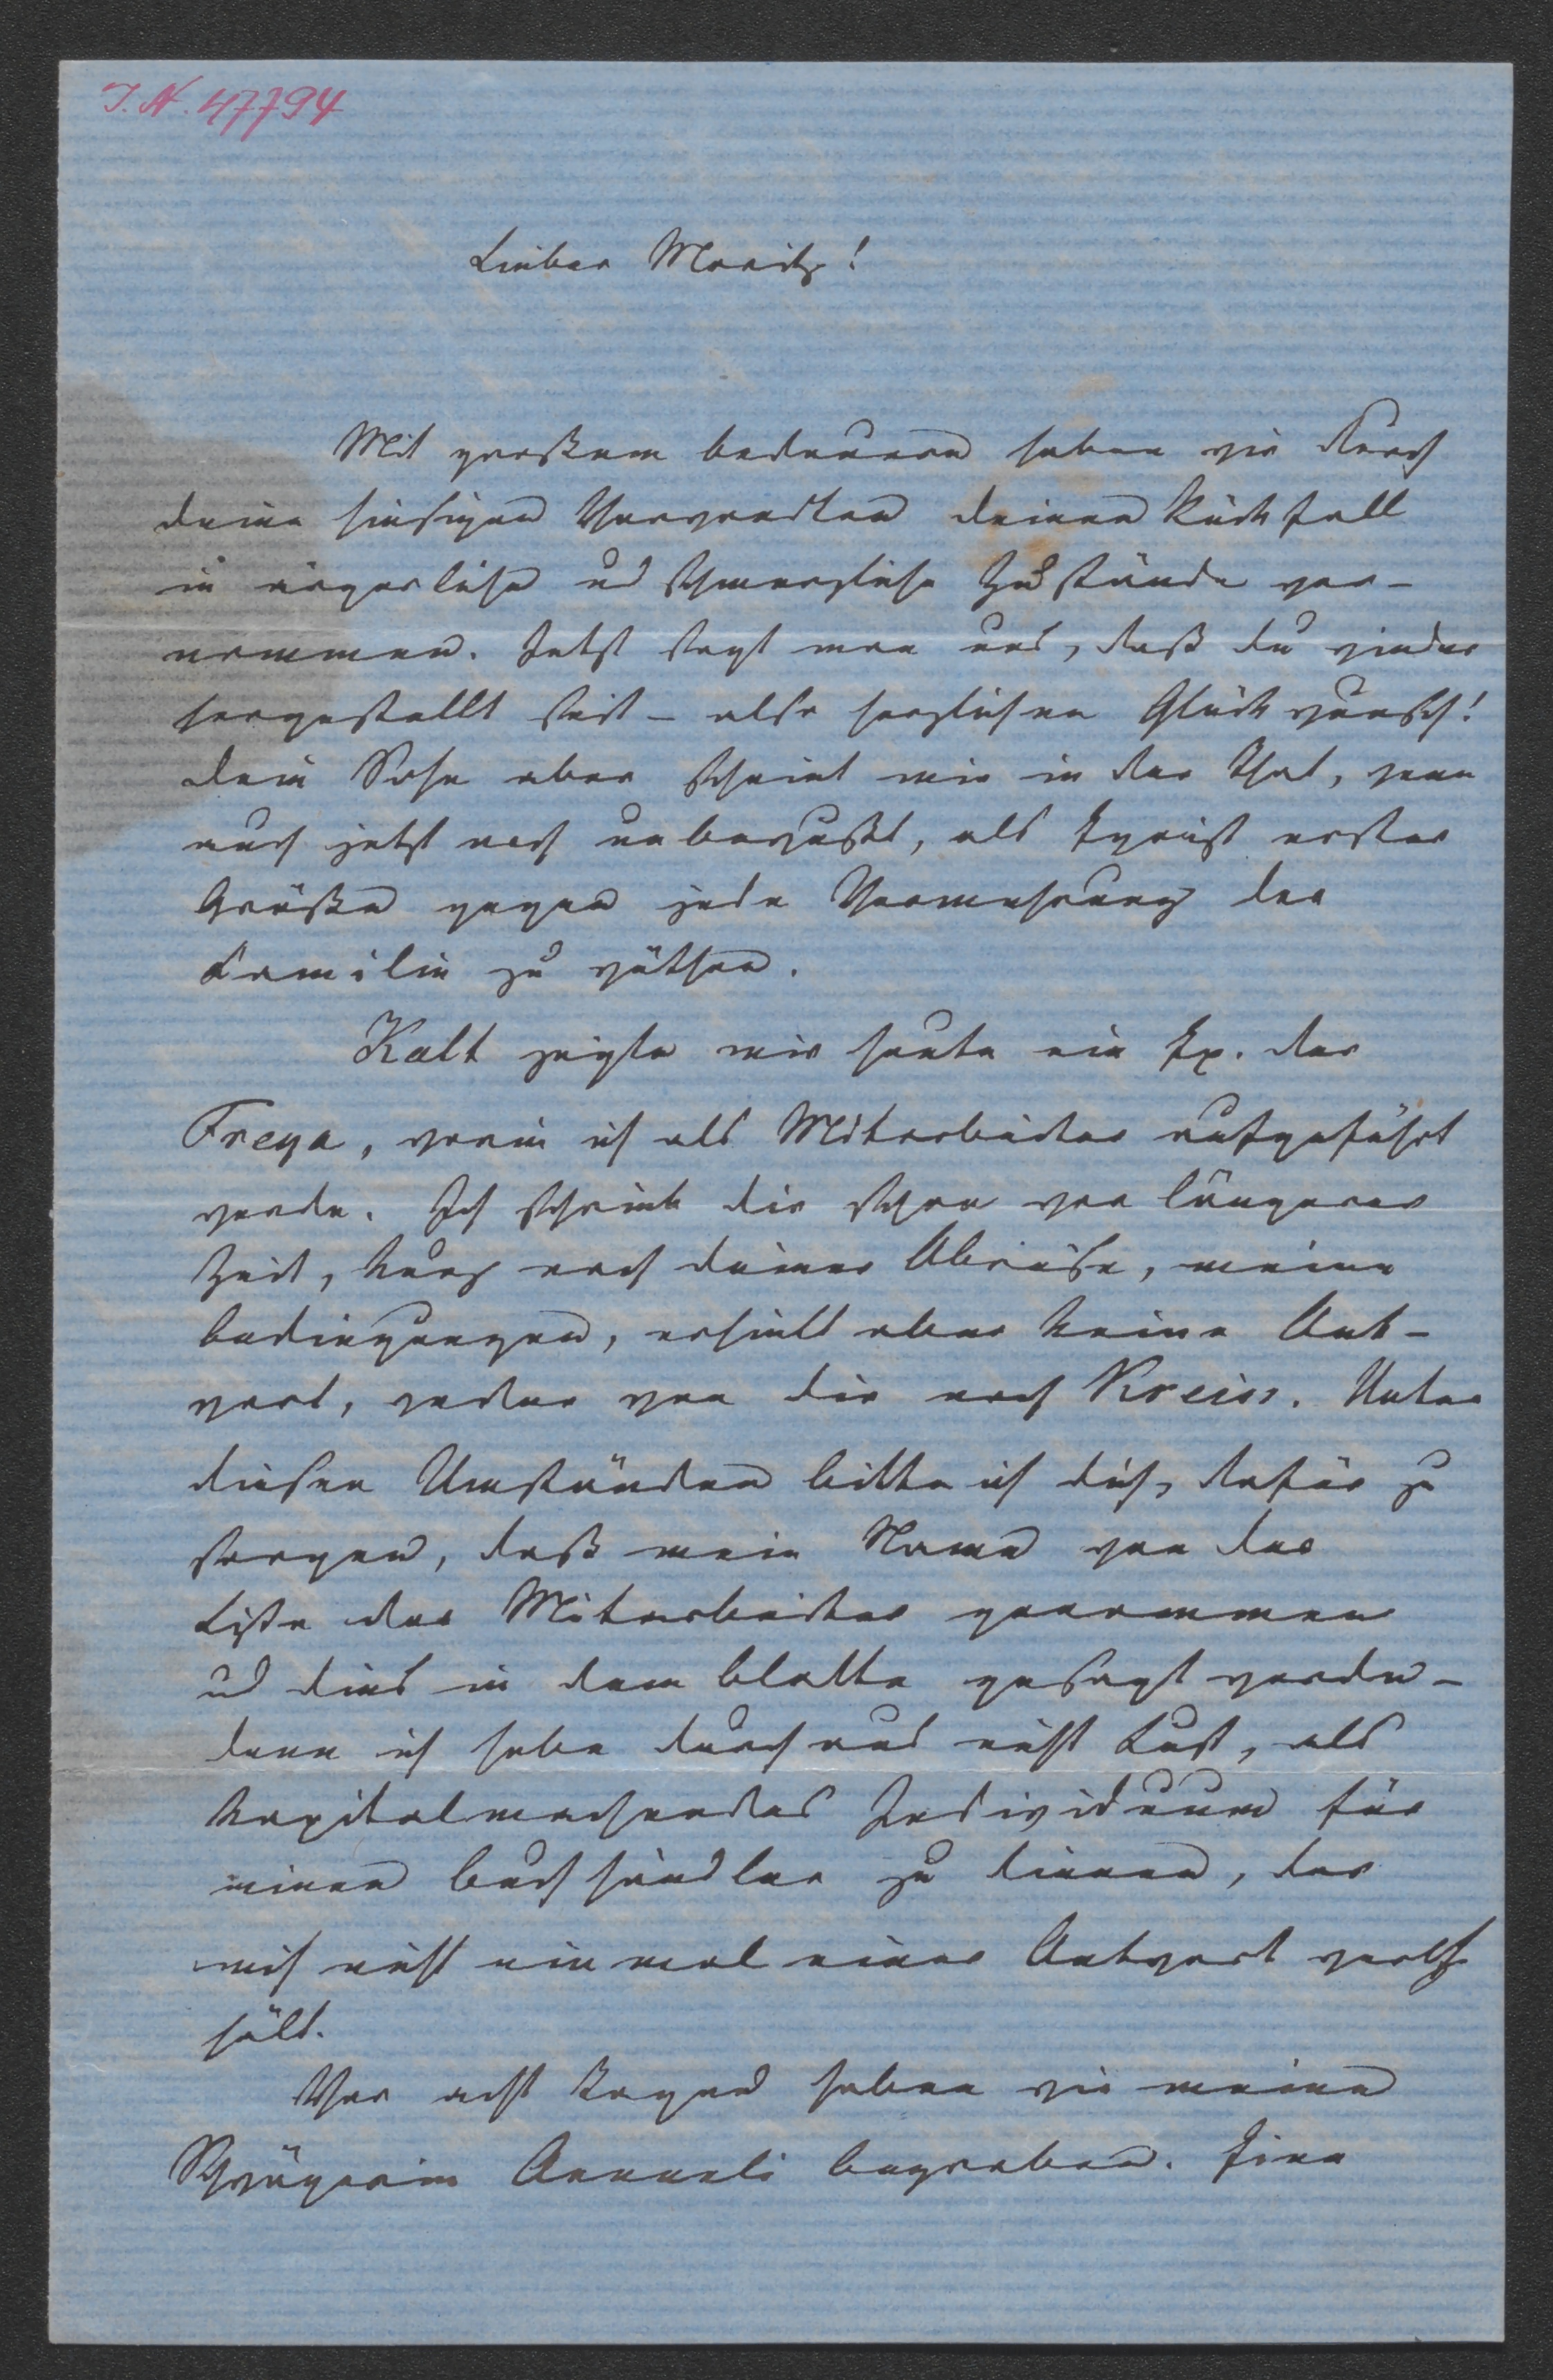 I. N. 47794
Lieber Moritz!
Mit großem bedauern haben wir durch
deine hiesigen Verwandten deinen Rückfall
in ärgerliche ud schmerzliche Zustände ver-
nommen. Jetzt sagt man uns, daß du wieder
hergestellt seist – also herzlichen Glückwunsch!
dein Sohn aber scheint mir in der That, wenn
auch jetzt noch unbewußt, als Egoist erster
Größe gegen jede Vermehrung der
Familie zu wüthen.
Kalt zeigte mir heute ein Ex. der
Freya, worin ich als Mitarbeiter aufgeführt
werde. Ich schrieb dir schon vor längerer
Zeit, kurz nach deiner Abreise, meine
bedingungen, erhielt aber keine Ant-
wort, weder von dir noch Kreiss. Unter
diesen Umständen bitte ich dich, dafür zu
sorgen, daß mein Name von der
Liste der Mitarbeiter genommen
ud dies in dem blatte gesagt werde –
denn ich habe durchaus nicht Lust, als
kapitalmachendes Individuum für
einen buchhändler zu dienen, der
mich nicht einmal einer Antwort werth
hält.
Vor acht Tagen haben wir meine
Schwägerin Annneli begraben. Eine